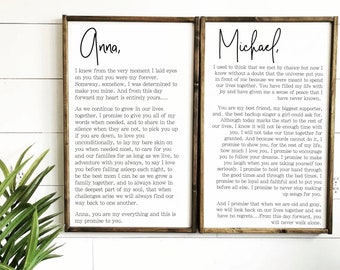 Anna,
I knew from the very moment I laid eyes
on you that you were my forever.
Someway, somehow, I was determined to
make you mine. And from this day
forward my heart is entirely yours....
As we continue to grow in our lives
together, I promise to give you all of my
words when needed, and to share in the
silence when they are not, to pick you up
if you are down, to love you
unconditionally, to lay my bare skin on
you when needed most, to care for you
and our families for as long as we live, to
adventure with you always, to say I love
you before falling asleep each night, to
be the best mom I can be as we grow a
family together, and to always know in
the deepest part of my soul, that when
challenges arise we will always find our
way back to one another.
Anna, you are my everything and this is
my promise to you.
Michael,
I used to think that we met by chance but now I
know without a doubt that the universe put you
in front of me because we were meant to spend
our lives together. You have filled my life with
joy and have given me a sense of peace that I
have never known.
You are my best friend, my biggest supporter,
and the best backup singer a girl could ask for.
Although today marks the start to the rest of
our lives, I know it will not be enough time with
you. I will not take our time together for
granted. And because words cannot do it, I
promise to show you, for the rest of my life,
how much I love you. I promise to encourage
you to follow your dreams. I promise to make
you laugh when you are taking yourself too
seriously. I promise to hold your hand through
the good times and through the hard times. I
promise to be loyal and faithful and to put you
before all else. I promise to never stop making
up songs for you.
And I promise that when we are old and gray,
we will look back on our lives together and we
have no regrets....from this day forward, you
will never walk alone.